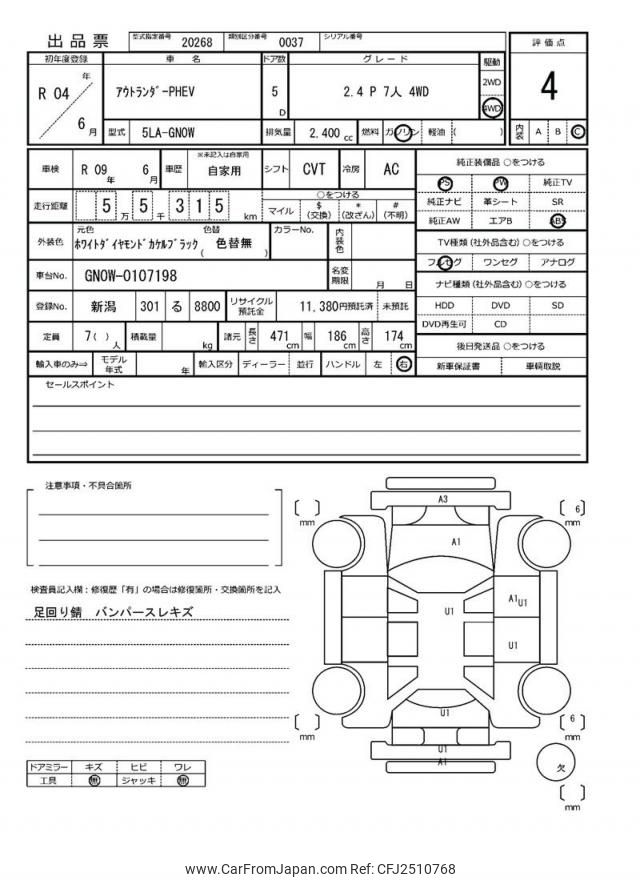 出品票 型式指定番号 20268 類別区分番号 0037 シリアル番号
評価点
初年度登録 車名 ドア数 グレード 駆動
R 04 年 6 月 アウトランダｰPHEV 5 D 2.4 P 7人 4WD 2WD 4WD
4
型式 5LA-GN0W 排気量 2.400 cc 燃料 ガソリン 軽油 ( ) 内装 A B C
車検 R 09 年 6 月 車歴 ※未記入は自家用 自家用 シフト CVT 冷房 AC
走行距離 5 万 5 千 3 1 5 km ○をつける
マイル $ (交換) * (改ざん) # (不明)
外装色 元色 ホワイトダイヤモンドカケルブラック 色替 ( 色替無 ) カラーNo. 内装色
車台No. GN0W-0107198 名変期限 月 日
登録No. 新潟 301 る 8800 リサイクル預託金 11,380円預託済 未預託
定員 7( ) 人 積載量 kg 諸元 長さ 471 cm 幅 186 cm 高さ 174 cm
輸入車のみ⇒ モデル年式 年 輸入区分 ディーラー 並行 ハンドル 左 右
純正装備品 ○をつける
PS PW 純正TV
純正ナビ 革シート SR
純正AW エアB ABS
TV種類 (社外品含む) ○をつける
フルセグ ワンセグ アナログ
ナビ種類 (社外品含む) ○をつける
HDD DVD SD
DVD再生可 CD
後日発送品 ○をつける
新車保証書 車輌取説
セールスポイント
注意事項・不具合箇所
検査員記入欄：修復歴「有」の場合は修復箇所・交換箇所を記入
足回り錆 バンパースレキズ
ドアミラー キズ ヒビ ワレ
工具 無 ジャッキ 無
A3
[ ] mm
[ 6 ] mm
A1
U1
A1 U1
U1
U1
[ ] mm
[ 6 ] mm
U1
A1
欠
[ ] mm
www.CarFromJapan.com Ref: CFJ2510768